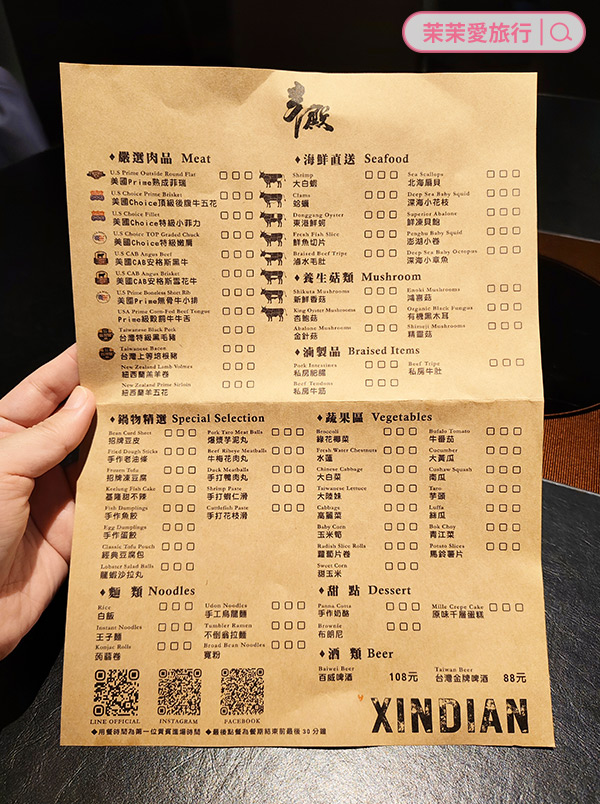 茉茉愛旅行
辛殿
嚴選肉品 Meat
U.S Prime Outside Round Flat
美國Prime熟成菲瑞
U.S Choice Prime Brisket
美國Choice頂級後腹牛五花
U.S Choice Fillet
美國Choice特級小菲力
U.S Choice TOP Graded Chuck
美國Choice特級嫩肩
U.S CAB Angus Beef
美國CAB安格斯黑牛
U.S CAB Angus Brisket
美國CAB安格斯雪花牛
U.S Prime Boneless Short Rib
美國Prime無骨牛小排
USA Prime Corn-Fed Beef Tongue
Prime級穀飼牛牛舌
Taiwanese Black Pork
台灣特級黑毛豬
Taiwanese Bacon
台灣上等培根豬
New Zealand Lamb Volmex
紐西蘭羔羊卷
New Zealand Prime Sirloin
紐西蘭羊五花
海鮮直送 Seafood
Shrimp
大白蝦
Clams
蛤蠣
Donggang Oyster
東港鮮蚵
Fresh Fish Slice
鮮魚切片
Braised Beef Tripe
滷水毛肚
Sea Scallops
北海扇貝
Deep Sea Baby Squid
深海小花枝
Superior Abalone
鮮凍貝鮑
Penghu Baby Squid
澎湖小卷
Deep Sea Baby Octopus
深海小章魚
養生菇類 Mushroom
Shikuta Mushrooms
新鮮香菇
King Oyster Mushrooms
杏鮑菇
Abalone Mushrooms
金針菇
Enoki Mushrooms
鴻喜菇
Organic Black Fungus
有機黑木耳
Shimeji Mushrooms
精靈菇
滷製品 Braised Items
Pork Intestines
私房肥腸
Beef Tendons
私房牛筋
Beef Tripe
私房牛肚
鍋物精選 Special Selection
Bean Curd Sheet
招牌豆皮
Fried Dough Sticks
手作老油條
Frozen Tofu
招牌凍豆腐
Keelung Fish Cake
基隆甜不辣
Fish Dumplings
手作魚餃
Egg Dumplings
手作蛋餃
Classic Tofu Pouch
經典豆腐包
Lobster Salad Balls
龍蝦沙拉丸
Pork Taro Meat Balls
爆漿芋泥丸
Beef Ribeye Meatballs
牛梅花肉丸
Duck Meatballs
手打鴨肉丸
Shrimp Paste
手打蝦仁滑
Cuttlefish Paste
手打花枝滑
蔬果區 Vegetables
Broccoli
綠花椰菜
Fresh Water Chestnuts
水蓮
Chinese Cabbage
大白菜
Taiwanese Lettuce
大陸妹
Cabbage
高麗菜
Baby Corn
玉米筍
Radish Slice Rolls
蘿蔔片卷
Sweet Corn
甜玉米
Bufalo Tomato
牛番茄
Cucumber
大黃瓜
Cushaw Squash
南瓜
Taro
芋頭
Luffa
絲瓜
Bok Choy
青江菜
Potato Slices
馬鈴薯片
麵 類 Noodles
Rice
白飯
Instant Noodles
王子麵
Konjac Rolls
蒟蒻卷
Udon Noodles
手工烏龍麵
Tumbler Ramen
不倒翁拉麵
Broad Bean Noodles
寬粉
甜 點 Dessert
Panna Cotta
手作奶酪
Brownie
布朗尼
Mille Crepe Cake
原味千層蛋糕
酒 類 Beer
Baiwei Beer
百威啤酒 108元
Taiwan Beer
台灣金牌啤酒 88元
LINE OFFICIAL INSTAGRAM FACEBOOK
XINDIAN
用餐時間為第一位貴賓進場時間 最後點餐為餐期結束前最後30分鐘